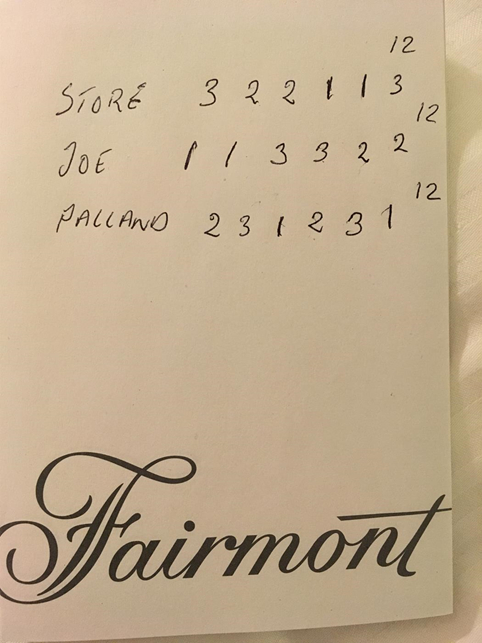 12
STORE 3 2 2 1 1 3
12
JOE 1 1 3 3 2 2
12
PALLAND 2 3 1 2 3 1
Fairmont